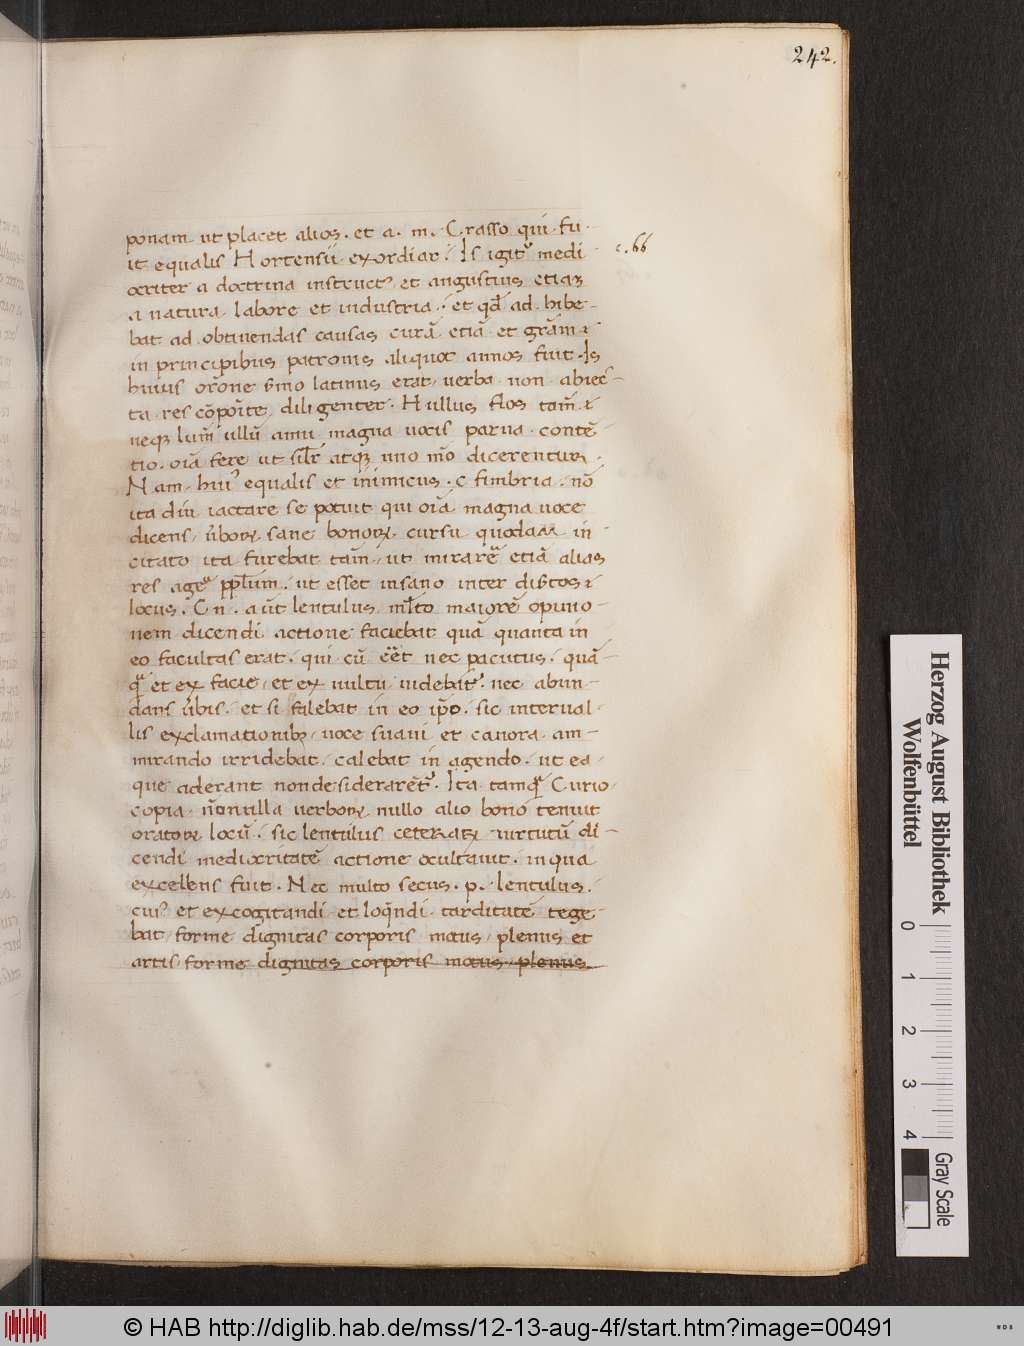 242.
ponam ut placet alios. et a. m. Crasso qui fu
it equalis Hortensii exordiar. Is igit᷒ medi
c. 66
ocriter a doctrina instruct᷒ et angustius etiaꝫ
a natura labore et industria. et qđ ad hibe-
bat ad obtinendas causas curā etiā et gr̄am
in principibus patronis aliquot annos fuit. Is
huius or̄one s̄mo latinus erat uerba non abiec-
ta res cōpoīte diligenter. Hullus flos tam̄
neqꝫ lum̄ ullū animi magna uocis parua contē
tio. oīa fere ut silr̄ atqꝫ uno mō dicerentur.
Nam hui᷒ equalis et inimicus. c fimbria. nō
ita diu iactare se potuit qui oīa magna uoce
dicens. ūboꝝ sane bonoꝝ cursu quodam in
citato ita furebat tam̄ ut mirarē etiā alias
res agē pp̄lum. ut esset insano inter dis̄tos
locus. Cn. aūt lentulus ml̄to maiorē opinio-
nem dicendi actione faciebat quā quanta in
eo facultas erat. qui cū eēt nec pacutus. quā-
q̄ et ex facie et ex uultu uidebat᷒. nec abun-
dans ūbis. et si falebat in eo ip̄o. sic interual-
lis exclamationibꝫ uoce suaui et canora am-
mirando irridebat calebat in agendo. ut ea
que aderant non desiderarēt᷒. Ita tamq̄ Curio
copia n̄onulla uerboꝝ nullo alio bono tenuit
oratoꝝ locū. sic lentulus ceteraꝝ uirtutū di-
cendi mediocritatē actione ocultauit. in qua
excellens fuit. Nec multo secus. p. lentulus.
cui᷒ et excogitandi et loq̄ndi tarditatē tege-
bat forme dignitas corporis motus plenus et
artis forme dignitas corporis motus plenus
Herzog August Bibliothek
Wolfenbüttel
0 1 2 3 4
Gray Scale
© HAB http://diglib.hab.de/mss/12-13-aug-4f/start.htm?image=00491